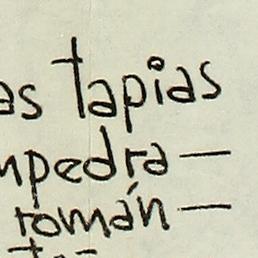 as tapias
mpedra—
román—